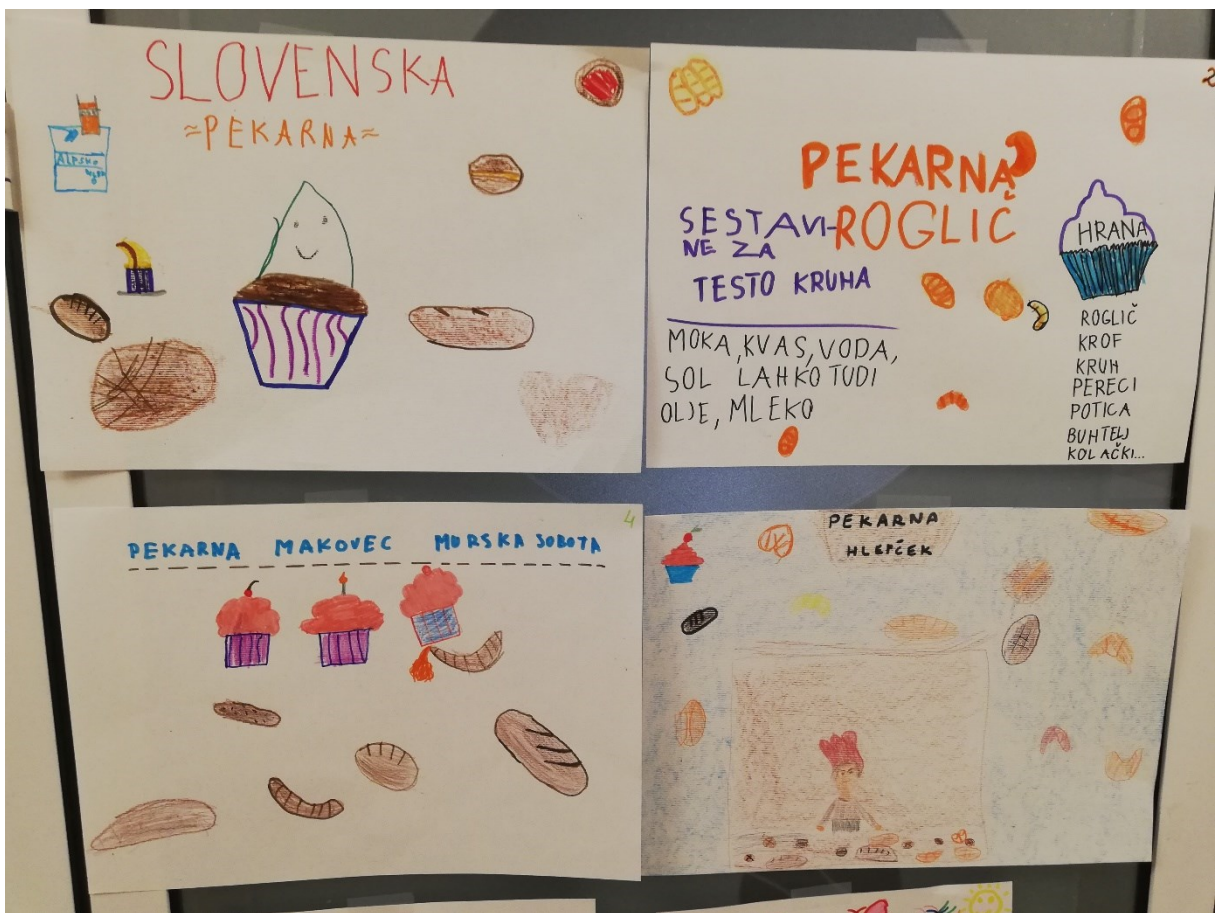 SLOVENSKA
≈PEKARNA≈
ALPSKO
2
PEKARNA
ROGLIČ
SESTAVI-
NE ZA
TESTO KRUHA
MOKA, KVAS, VODA,
SOL LAHKO TUDI
OLJE, MLEKO
HRANA
ROGLIČ
KROF
KRUH
PERECI
POTICA
BUHTELJ
KOLAČKI...
4
PEKARNA MAKOVEC MURSKA SOBOTA
PEKARNA
HLEPČEK